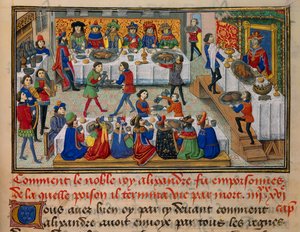 Comment le noble roy alixandre fu empoisonnes
de la quelle poison il termina vie par mort.
Vous auez bien oy par cy deuant comment
alixandre auoit enuoye par tous les regnes